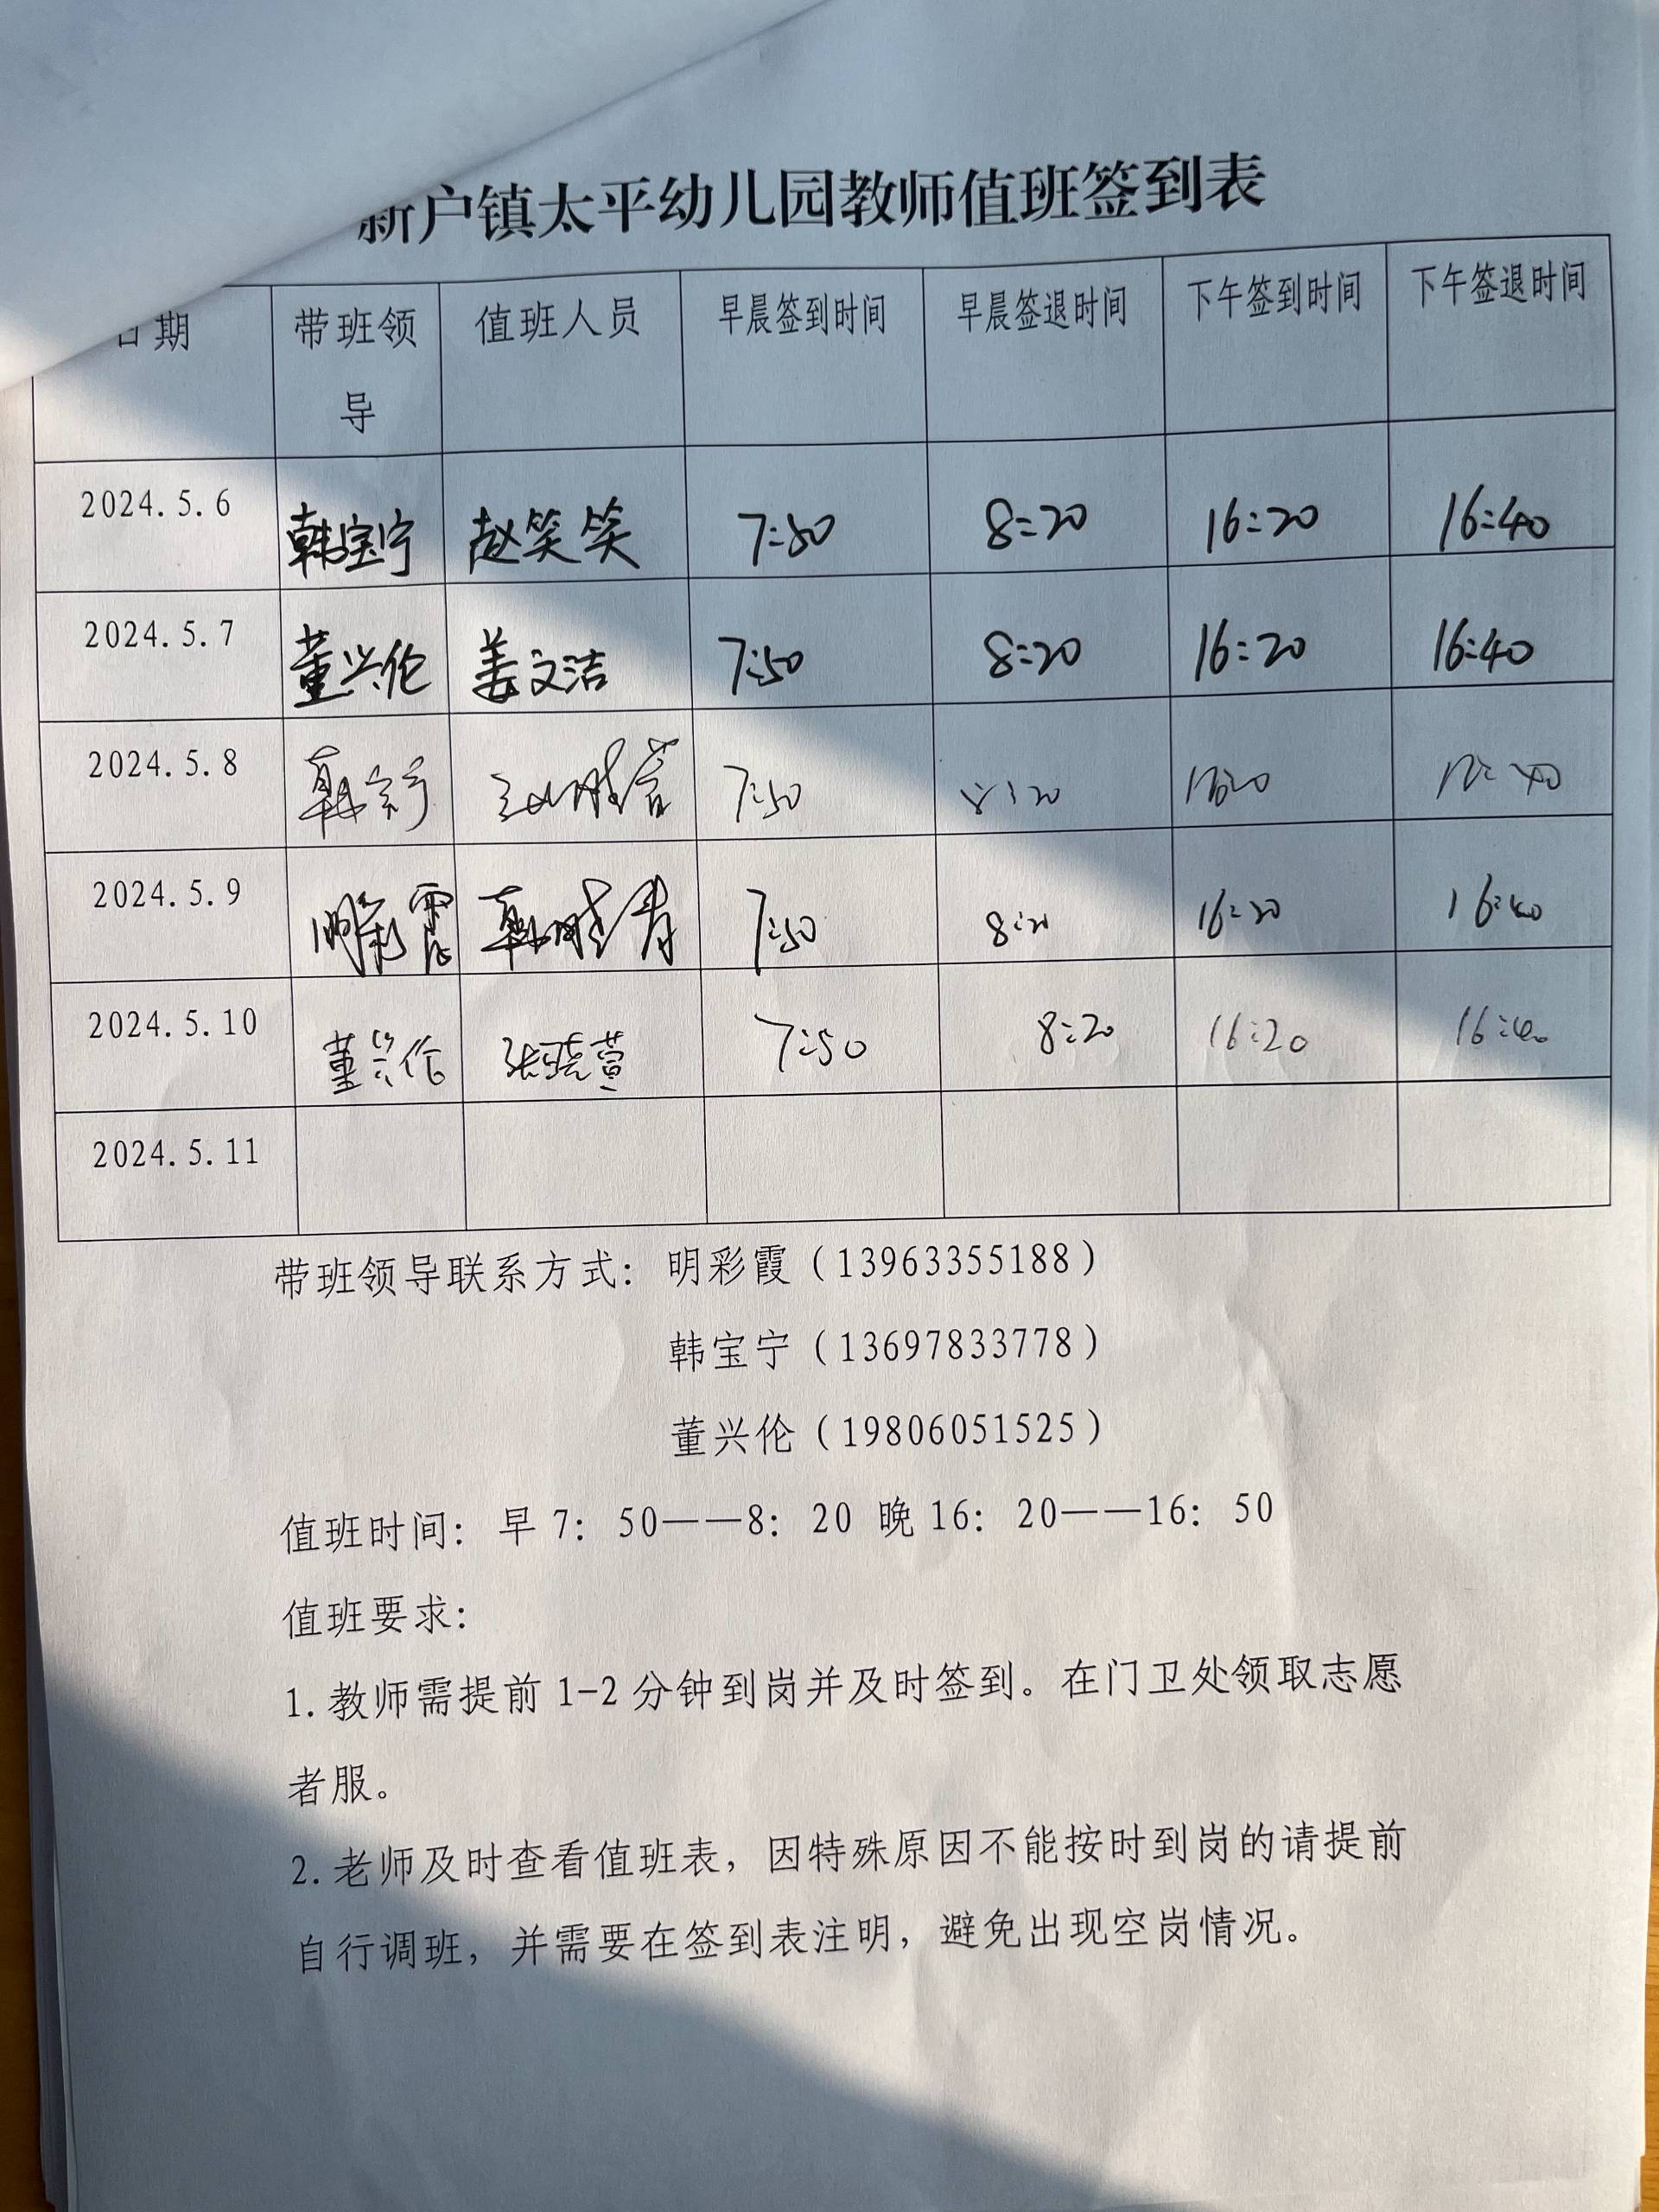 新户镇太平幼儿园教师值班签到表
日期 带班领导 值班人员 早晨签到时间 早晨签退时间 下午签到时间 下午签退时间
2024.5.6 韩宝宁 赵笑笑 7:50 8:20 16:20 16:40
2024.5.7 董兴伦 姜文洁 7:50 8:20 16:20 16:40
2024.5.8 韩宝宁 7:50 8:20 16:20
2024.5.9 明彩霞 韩晓青 7:50 8:20 16:20 16:40
2024.5.10 董兴伦 张晓萱 7:50 8:20 16:20 16:40
2024.5.11
带班领导联系方式：明彩霞（13963355188）
韩宝宁（13697833778）
董兴伦（19806051525）
值班时间：早 7：50——8：20 晚 16：20——16：50
值班要求：
1.教师需提前 1-2 分钟到岗并及时签到。在门卫处领取志愿
者服。
2.老师及时查看值班表，因特殊原因不能按时到岗的请提前
自行调班，并需要在签到表注明，避免出现空岗情况。